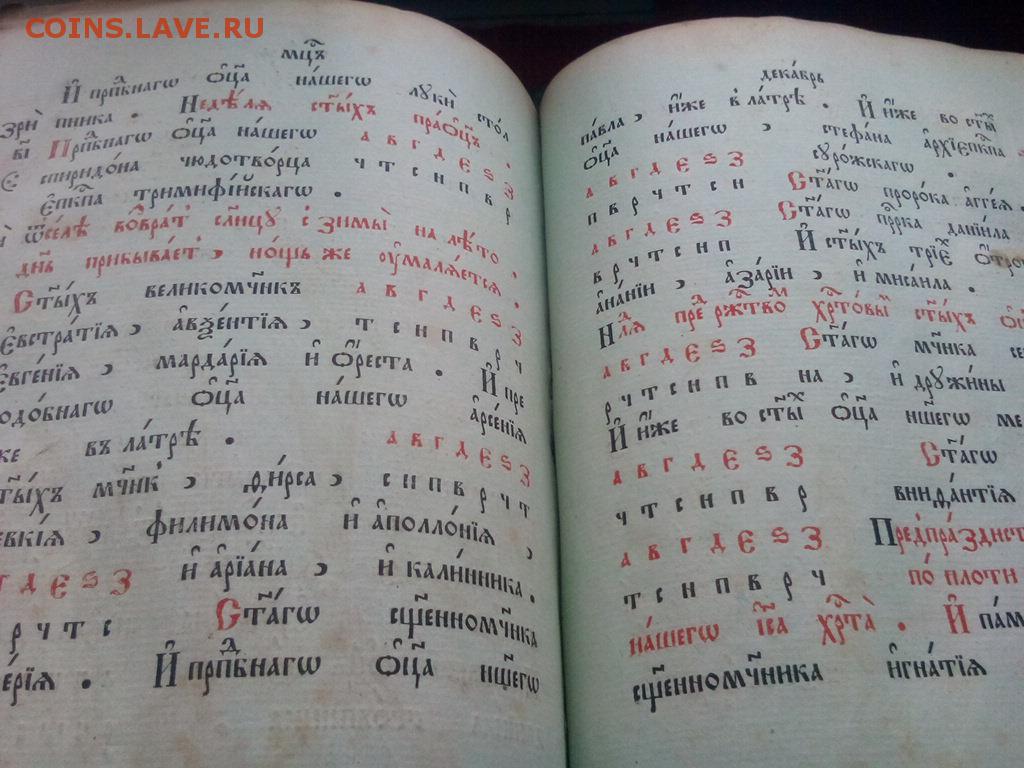 COINS.LAVE.RU
мц҃ъ
И҆ прпⷣбнагѡ ѻ҆ц҃а на́шегѡ лꙋки̂ сто́л
пника . Недѣ́лѧ ст҃ы́хъ пра́ѻц҃ъ .
Прпⷣбнагѡ ѻ҆ц҃а на́шегѡ а в г д є ѕ з
спиридѡ́на чюдотво́рца ч т с н п в р
є҆пкⷭпа тримифі́йскагѡ .
ѿсе́лѣ во́врат сл҃нцꙋ с зимы̀ на лѣ́то .
дн҃ь прибыва́етъ , но́щь же ᲂу҆малѧ́етсѧ .
Ст҃ы́хъ великомч҃нкъ а в г д є ѕ з
є҆встра́тїѧ , а҆ѵѯе́нтїѧ , т с н п в р ч
є҆вге́нїѧ , марда́рїѧ и҆ ѻ҆ре́ста . И҆ пре
подо́бнагѡ ѻ҆ц҃а на́шегѡ а҆рсе́нїѧ
же въ ла́трѣ . а в г д є ѕ з
ст҃ы́хъ мч҃нкъ , ди́рса , с н п в р ч т
левкі́ѧ , филимо́на и҆ а҆поллѡ́нїѧ ,
в г д є ѕ з и҆ а҆рїа́на , и҆ кали́нника .
р ч т с Ст҃а́гѡ сщ҃енномч҃нка
ерїѧ . И҆ прпⷣбнагѡ ѻ҆ц҃а нш҃егѡ
дека́брь
па́вла , и҆́же в ла́трѣ . И҆ и҆́же во ст҃ы́
ѻ҆ц҃а на́шегѡ , стефана а҆рхїепкⷭпа
а в г д є ѕ з сꙋро́жскагѡ .
п в р ч т с н Ст҃а́гѡ проро́ка а҆гге́ѧ .
а в г д є ѕ з Ст҃а́гѡ прⷪ҇рка данїи́ла
в р ч т с н п И҆ ст҃ы́хъ трїе́
а҆на́нїи , а҆за́рїи , и҆ мисаи́ла .
Нлⷣѧ преⷣ ржⷭтво́м хрⷭто́вы ст҃ы́хъ
а в г д є ѕ з Ст҃а́гѡ мч҃нка се
р ч т с н п в на , и҆ дрꙋжи́ны
И҆ и҆́же во ст҃ы́х ѻ҆ц҃а нш҃егѡ
а в г д є ѕ з Ст҃а́гѡ
ч т с н п в р винида́нтїѧ
а в г д є ѕ з Предпра́зднст
т с н п в р ч по́ плоти
на́шегѡ і҆с҃а хрⷭта̀ . И҆ па́м
сщ҃енномч҃нника и҆гна́тїѧ